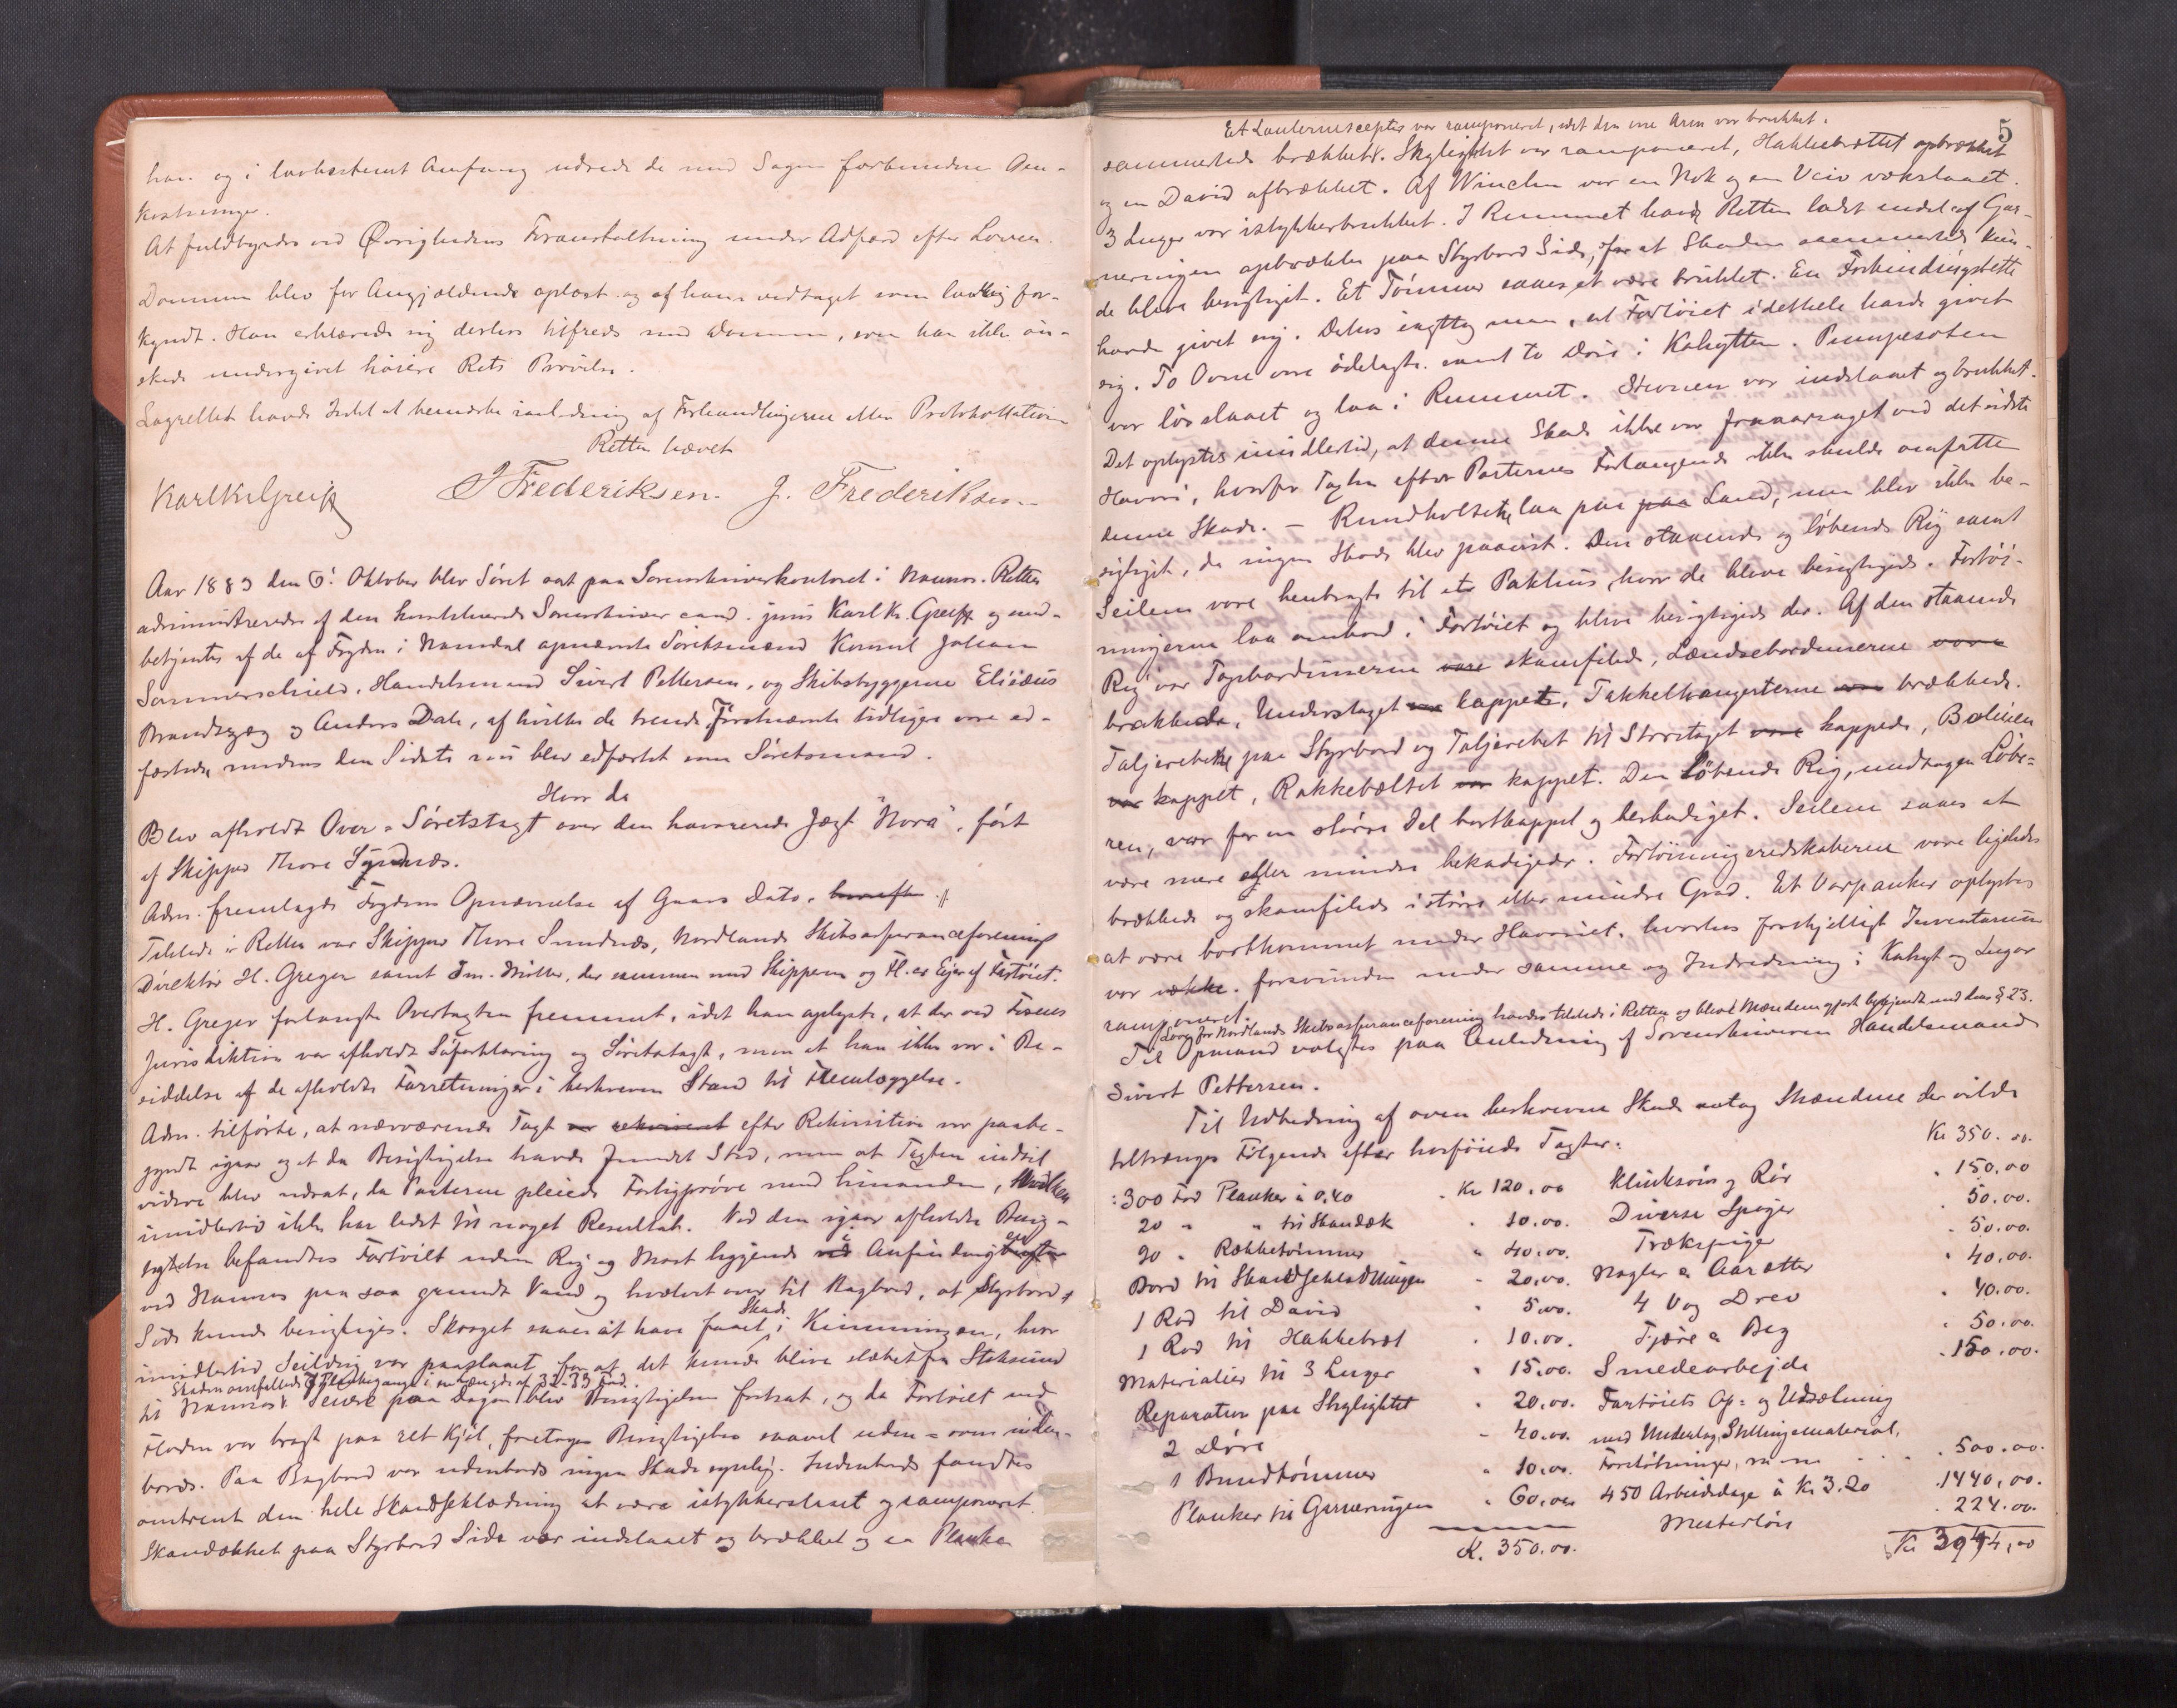 han og i lovbestemt Omfang udrede de med Sagen forbundne Om-
kostninger.
At fuldbyrdes ved Øvrighedens Foranstaltning under Adfærd efter Loven.
Dommen blev for Angjældende oplæst og af ham vedtaget som lovlig for-
kyndt. Han erklærede sig derhos tilfreds med Dommen, som han ikke øn-
skede undergivet høiere Rets Prøvelse.
Lagrettet havde Intet at bemærke i anledning af Forhandlingerne eller Protokollationen
Retten hævet
Karl K Greiff J Frederiksen. J. Frederiksen.
Aar 1883 den 6. Oktober blev Søret sat paa Sorenskriverkontoret i Namsos. Retten
administreredes af den konstituerede Sorenskriver cand. juris Karl K. Greiff og med-
betjentes af de af Fogden i Namdal opnævnte Søretsmænd Konsul Johan
Sommerschield, Handelsmand Sivert Pettersen, og Skibsbyggerne Elisæus
Brandtzæg og Anders Dahl, af hvilke de trende Førstnævnte tidligere vare ed-
fæstede, medens den Sidste nu blev edfæstet som Søretsmand.
Hvor da
Blev afholdt Over-Søretstagt over den havarerede Jægt "Nora", ført
af Skipper Thore Sundnæs.
Adm. fremlagde Fogdens Opnævnelse af Gaars Dato.
Tilstede i Retten var Skipper Thore Sundnæs, Nordlands Skibsassuranceforenings
Direktør H. Greger samt Im. Müller, der sammen med Skipperen og Fl. er Ejer af Fartøiet.
H. Greger forlangte Overtagten fremmet, idet han oplyste, at der ved Fosens
Jurisdiktion var afholdt Søforklaring og Søretstagt, men at han ikke var i Be-
siddelse af de afholdte Forretninger i beskreven Stand til Fremlæggelse.
Adm. tilførte, at nærværende Tagt efter Rekvisition var paabe-
gyndt igaar og at da Besigtigelse havde fundet Sted, men at Tagten indtil
videre blev udsat, da Parterne pleiede Forligsprøve med hinanden, hvilken
imidlertid ikke har ledet til noget Resultat. Ved den igaar afholdte Besig-
tigelse befandtes Fartøiet uden Rig og Mast liggende i Anfindingen
ved Namsos paa saa grundt Vand og hvælvet over til Bagbord, at Styrbord
Side kunde besigtiges. Skroget saaes at have faaet Skade i Kimmingen, hvor
imidlertid Seildug var paaslaaet for at det kunde blive slæbet fra Stoksund
Skaden omfattede 3 Plankegange i en Længde af 32-33 Fod.
til Namsos. Senere paa Dagen blev Besigtigelsen fortsat, og da Fartøiet med
Floden var bragt paa ret Kjøl, foretoges Besigtigelse saavel uden- som inden-
bords. Paa Bagbord var udenbords ingen Skade synlig. Indenbords fandtes
omtrent den hele Skandseklædning at være istykkerslaaet og ramponeret.
Skandækket paa Styrbord Side var indslaaet og brækket og en Planke
5
Et Lanternesceptre var ramponeret, idet den ene Arm var brukket.
sammesteds brækket. Skylightet var ramponeret, Hakkebrættet opbrækket
og en David afbrækket. Af Winchen var en Nok og en Veiv vækslaaet.
3 Luger var istykkerbrukket. I Rummet havde Retten ladet endel af Gar-
neringen opbrække paa Styrbord Side, for at Skaden sammesteds kun-
de blive besigtiget. Et Tømmer saaes at være brukket. En Forbindingsbette
havde givet sig. Derhos iagttog man, at Fartøiet i det hele havde givet
sig. To Ovne vare ødelagte samt to Døre i Kahytten. Pumpesoten
var løs slaaet og laa i Rummet. Stevnen var indslaaet og brukket.
Det oplystes imidlertid, at denne Skade ikke var foraarsaget ved det sidste
Havari, hvorfor Tagten efter Parternes Forlangende ikke skulde omfatte
denne Skade. — Rundholtet laa paa paa Land, men blev ikke be-
sigtiget, da ingen Skade blev paavist. Den staaende og løbende Rig samt
Seilene vare henbragte til et Pakhus, hvor de bleve besigtigede. Fortøi-
ningerne laa ombord i Fartøiet og bleve besigtigede der. Af den staaende
Rig var Topbardunerne vare skamfilede, Lændsebardunerne vare
brækkede, Understaget var kappet, Takkelhangerterne vare brækkede.
Taljerebet paa Styrbord og Taljerebet til Storstaget vare kappede, Bolinen
var kappet, Rakkebæltet var kappet. Den løbende Rig, undtagen Løbe-
ren, var for en større Del bortkappet og beskadiget. Seilene saaes at
være mere eller mindre bekadigede. Fortøiningsredskaberne vare ligeledes
brækkede og skamfilede i større eller mindre Grad. Et Varpanker oplystes
at være bortkommet under Havariet, hvorhos forskjelligt Inventarium
var vække forsvunden under samme og Indredning i Kahyt og Lugar
ramponeret.
Love for Nordlands Skibsassuranceforening havdes tilstede i Retten og bleve Mændene gjort bekjendt med dens § 23.
Til Opmand valgtes paa Anledning af Sorenskriveren Handelsmand
Sivert Pettersen.
Til Udbedring af oven beskrevne Skade antog Mændene der vilde
tiltrænges Følgende efter hosføiede Tagter:
300 Fod Planker à 0,40 . Kr 120,00 Klinksøm og Rør Kr 350.00.
20 " " til Skandæk " 10.00. Diverse Spiger " 150,00
90 " Rækketømmer " 40,00. Trækspiger " 50,00.
Bord til Skandseklædningen " 20,00. Nagler a Aarætter " 50.00.
1 Rod til David " 5,00. 4 Vog Drev " 40,00.
1 Rod til Hakkebræt " 10,00. Tjære a Beg " 40.00.
Materialier til 3 Luger " 15,00. Smedearbejde " 50.00.
Reparation paa Skylightet " 20,00. Fartøiets Op- og Udsætning . 150.00.
2 Døre " 40.00. med Underlag, Stillingsmaterial,
1 Bundtømmer " 10,00. Fortøininger, m m . . . 500.00.
Planker til Garneringen " 60,00 450 Arbeidsdage à Kr 3.20 . 1440,00.
Mesterløn . 224.00.
Kr. 350.00. Kr 3944,00